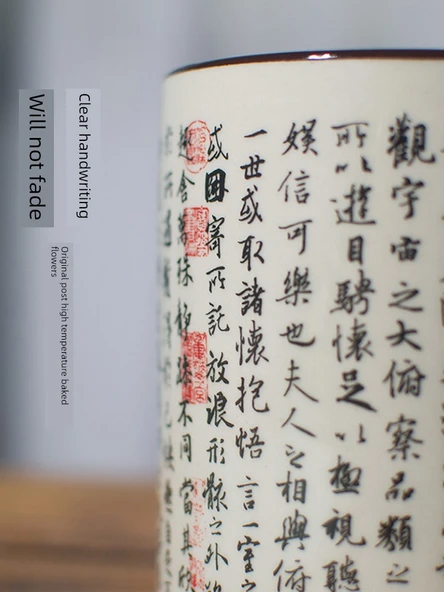 Clear handwriting
Will not fade
Original post high temperature baked
flowers
觀宇宙之大俯察品類之
所以遊目騁懷足以極視聽
娛信可樂也夫人之相與俯
一世或取諸懷抱悟言一室之
或因寄所託放浪形骸之外
趣舍萬殊靜躁不同當其欣